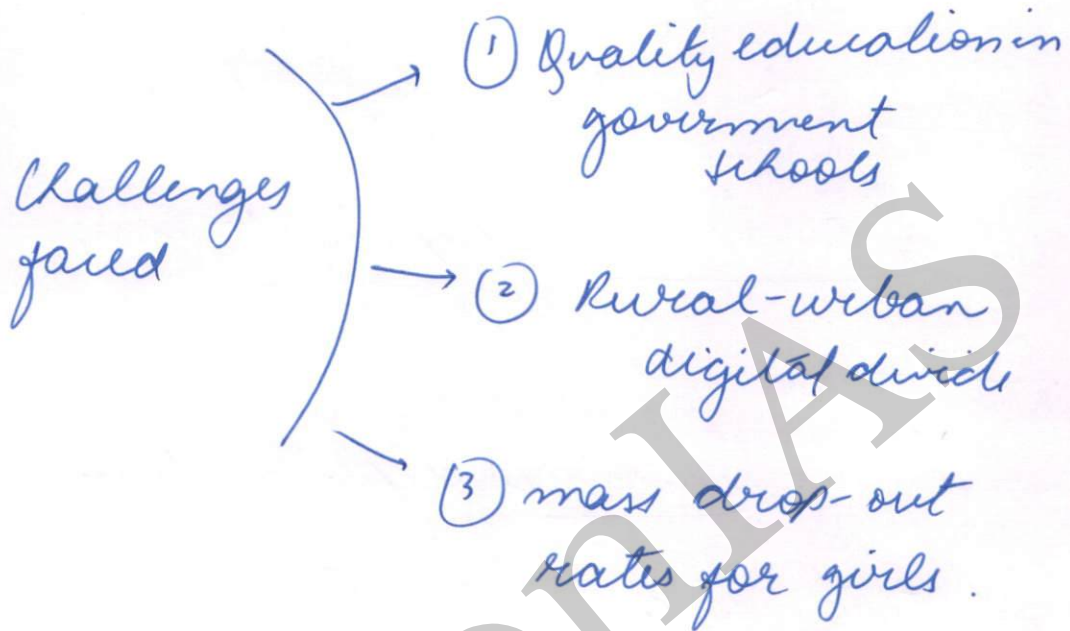 Challenges
faced
① Quality education in
government
schools
② Rural-urban
digital divide
③ mass drop-out
rates for girls.
nIAS